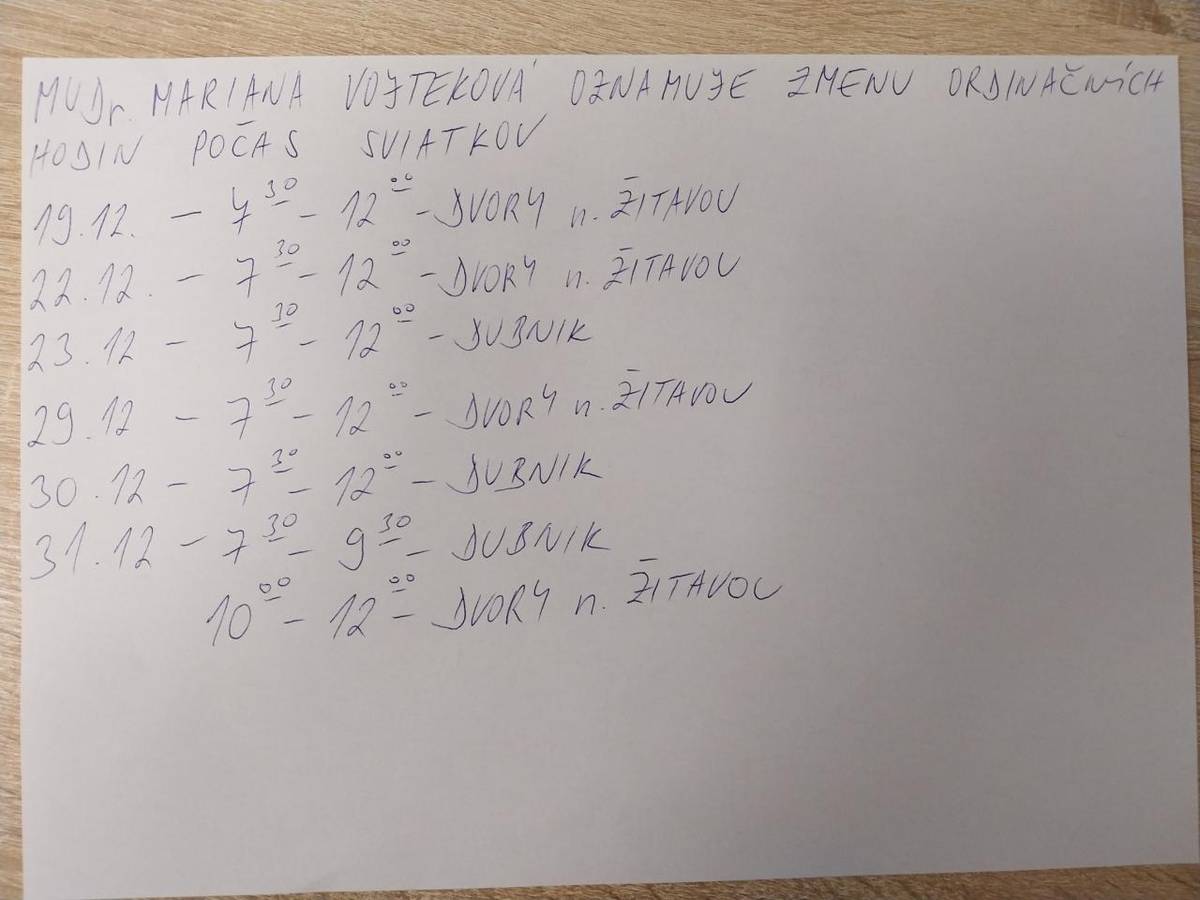 MUDr. MARIANA VOJTEKOVÁ OZNAMUJE ZMENU ORDINAČNÍCH
HODIN POČAS SVIATKOV
19.12. – 7³⁰ – 12⁰⁰ – DVORY n. ŽITAVOU
22.12. – 7³⁰ – 12⁰⁰ – DVORY n. ŽITAVOU
23.12 – 7³⁰ – 12⁰⁰ – DUBNIK
29.12 – 7³⁰ – 12⁰⁰ – DVORY n. ŽITAVOU
30.12 – 7³⁰ – 12⁰⁰ – DUBNIK
31.12 – 7³⁰ – 9³⁰ – DUBNIK
10⁰⁰ – 12⁰⁰ – DVORY n. ŽITAVOU